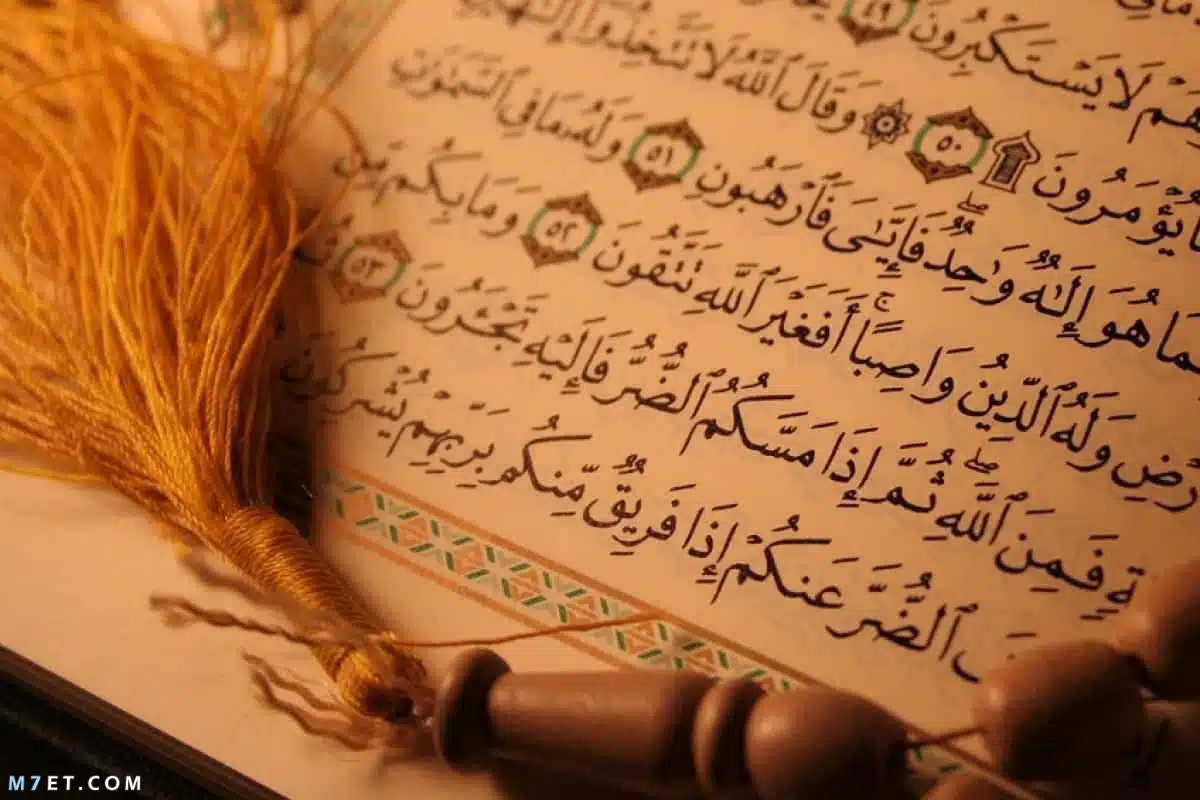 هُمْ لَا يَسْتَكْبِرُونَ ٤٩
يُؤْمَرُونَ ۩ ٥٠ ۞ وَقَالَ ٱللَّهُ لَا تَتَّخِذُوٓا۟
هُوَ إِلَٰهٌ وَٰحِدٌ ۖ فَإِيَّٰىَ فَٱرْهَبُونِ ٥١ وَلَهُۥ مَا فِى ٱلسَّمَٰوَٰتِ
وَلَهُ ٱلدِّينُ وَاصِبًا ۚ أَفَغَيْرَ ٱللَّهِ تَتَّقُونَ ٥٢ وَمَا بِكُم مِّن
فَمِنَ ٱللَّهِ ۖ ثُمَّ إِذَا مَسَّكُمُ ٱلضُّرُّ فَإِلَيْهِ تَجْـَٔرُونَ ٥٣
ٱلضُّرَّ عَنكُمْ إِذَا فَرِيقٌ مِّنكُم بِرَبِّهِمْ يُشْرِكُونَ
M7ET.COM